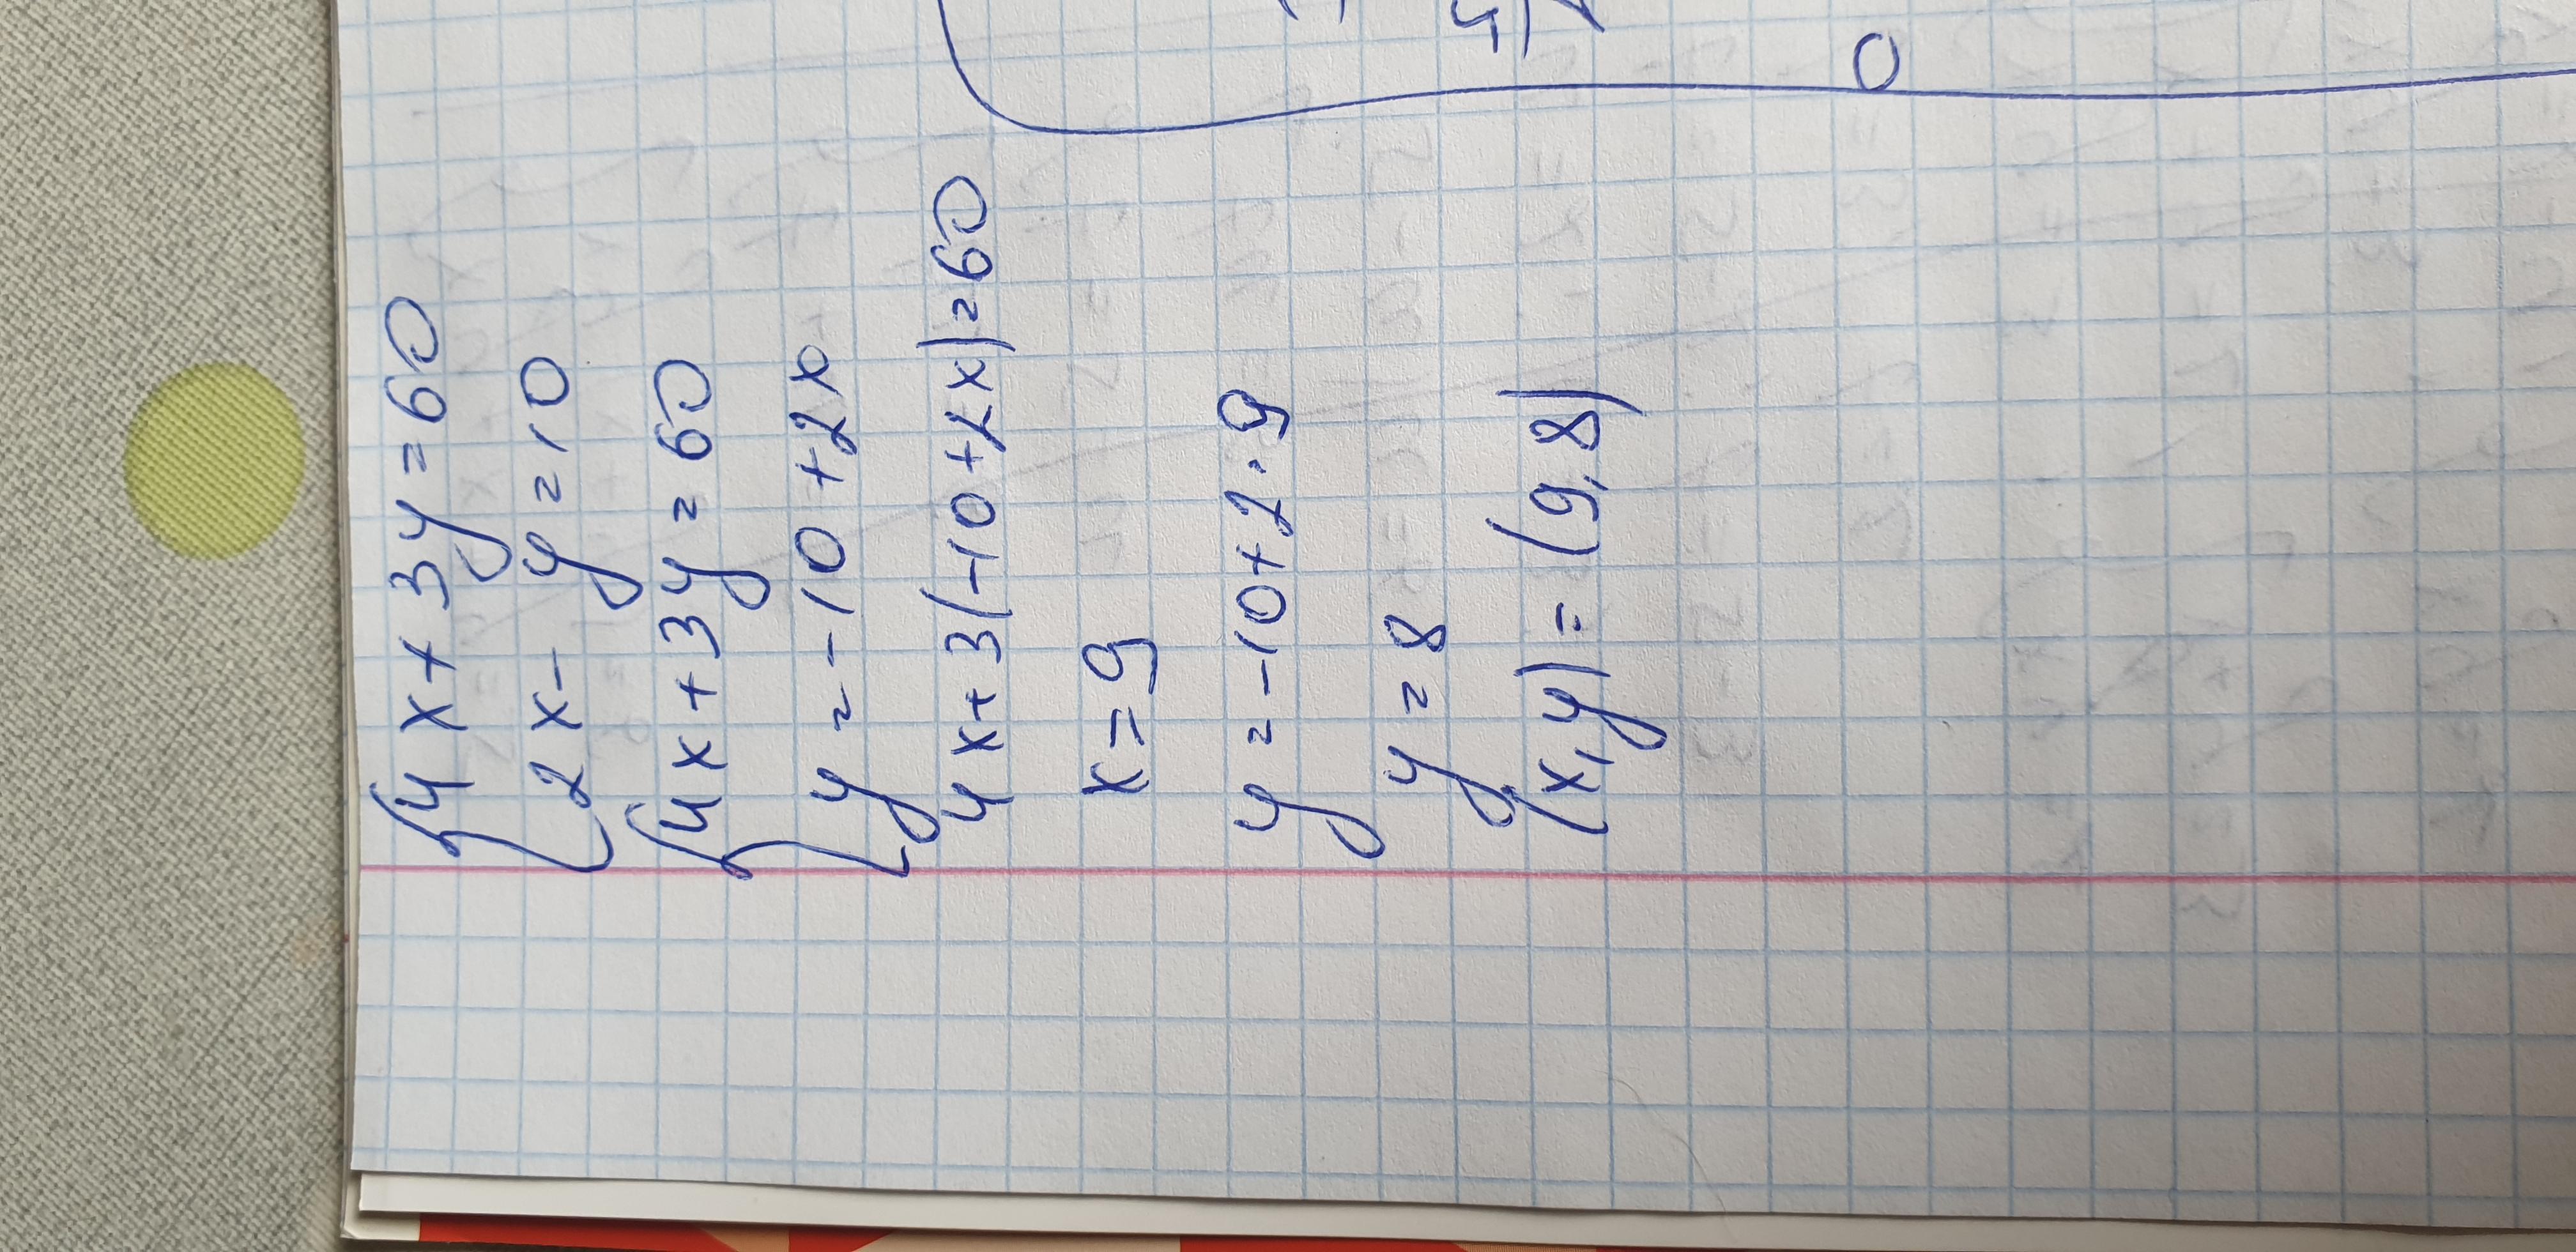 {4x+3y=60
2x-y=10
{4x+3y=60
y=-10+2x
4x+3(-10+2x)=60
x=9
y=-10+2·9
y=8
(x,y)=(9,8)